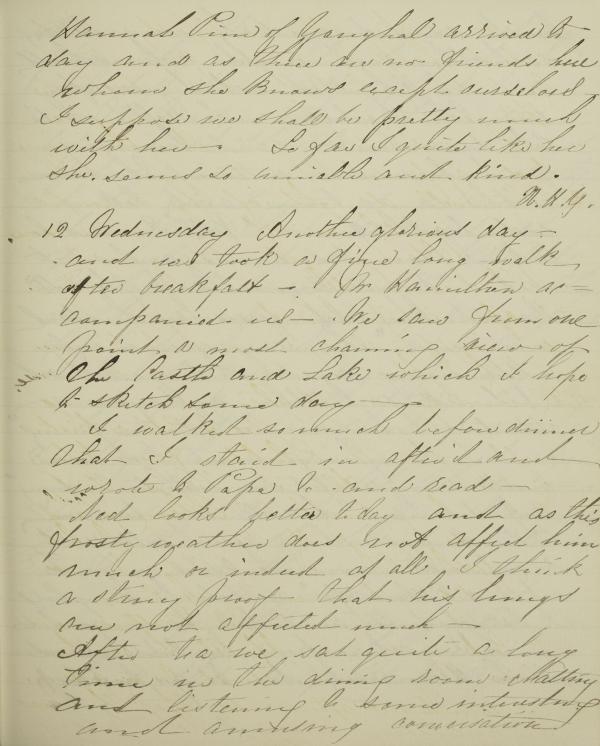 Hannah Pim of Youghal arrived to
day and as there are no friends here
whom she knows except ourselves -
I suppose we shall be pretty much
with her - So far I quite like her
she seems so amiable and kind.
12 Wednesday Another glorious day -
and we took a fine long walk
after breakfast - Dr Hamilton ac=
companied us - We saw from one
point a most charming view of
the Castle and Lake which I hope
to sketch some day -
I walked so much before dinner
that I staid in after it and
wrote to Papa &c and read -
Ned looks better today and as this
frosty weather does not affect him
much or indeed at all I think
a strong proof that his lungs
are not affected much -
After tea we sat quite a long
time in the dining room chatting
and listening to some interesting
and amusing conversation